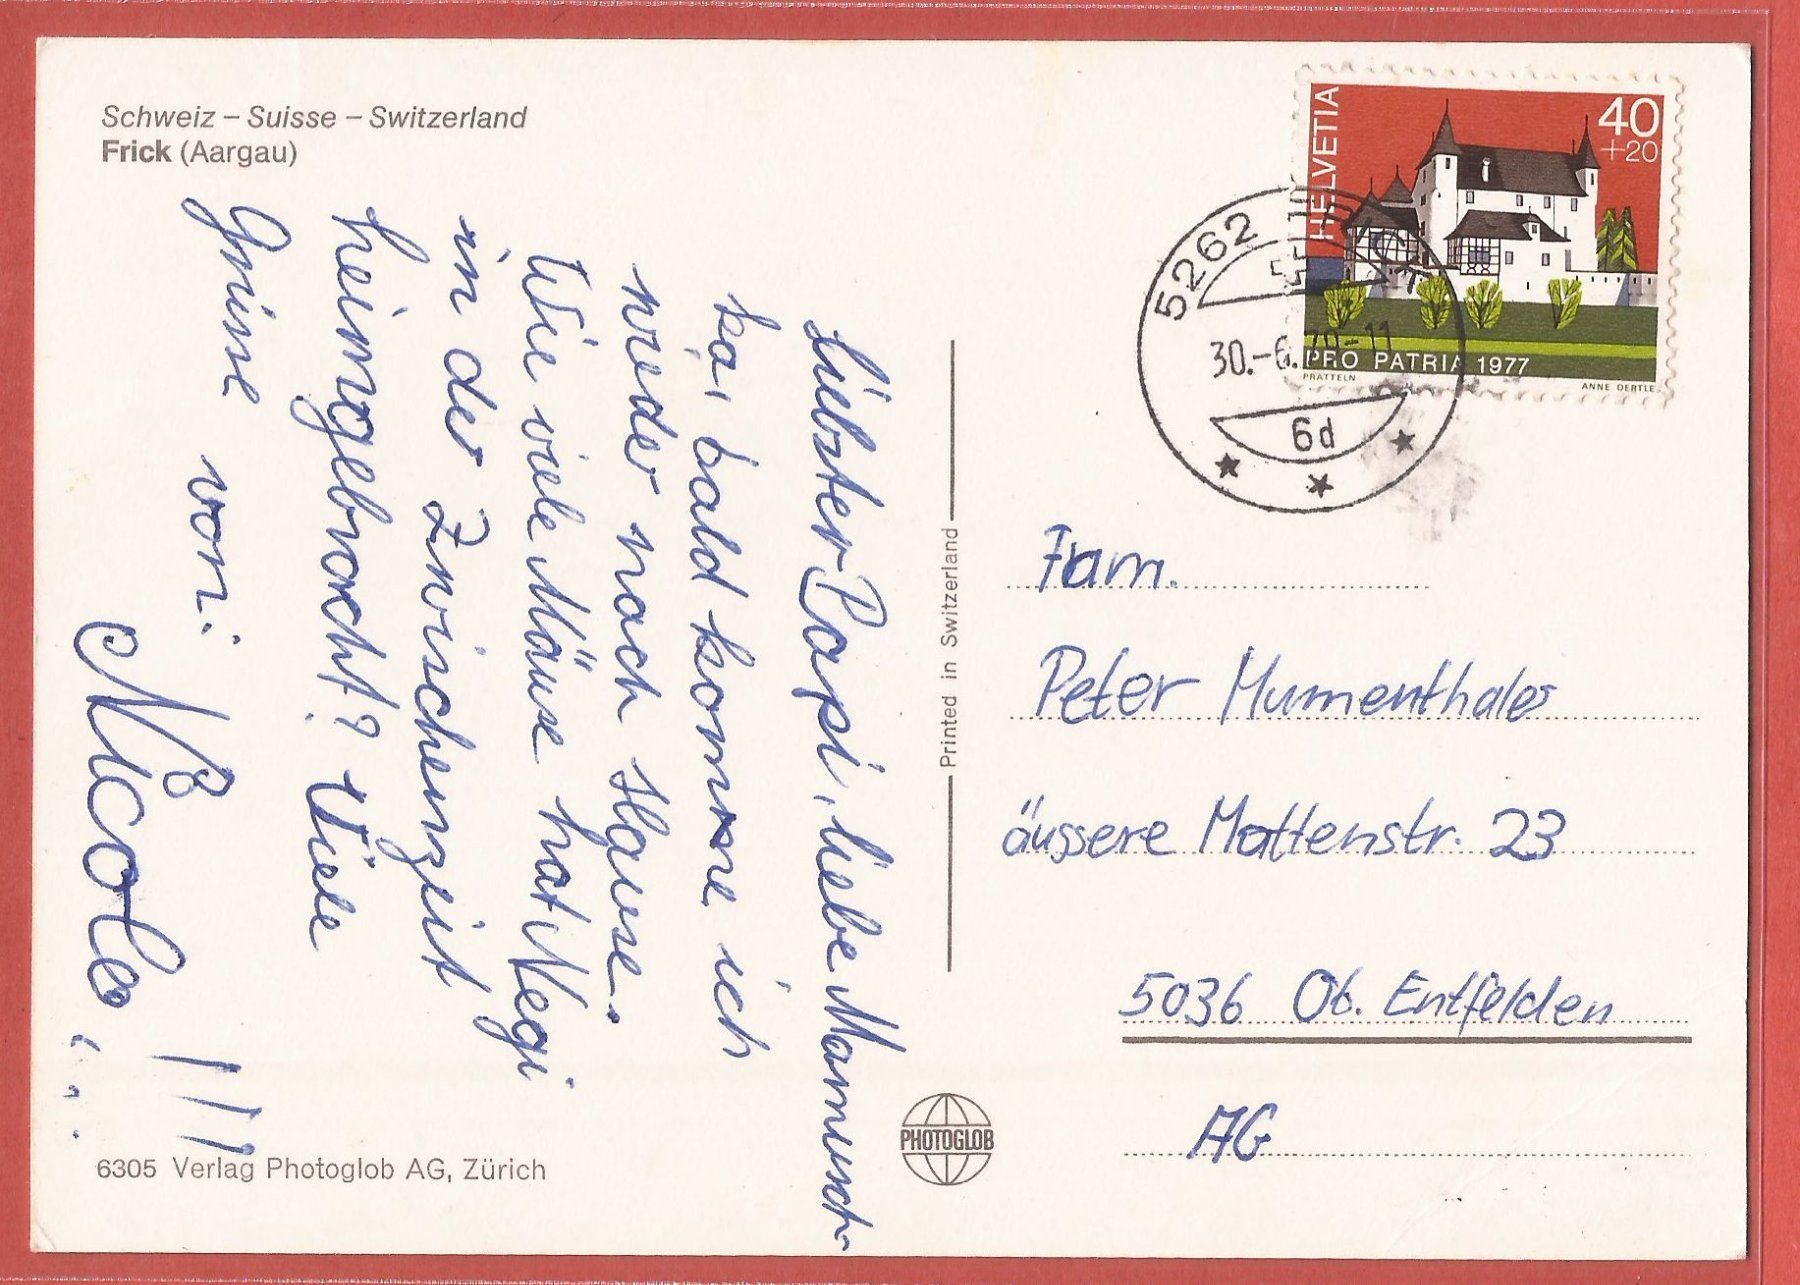 Schweiz – Suisse – Switzerland
Frick (Aargau)
Liebster Papi, liebe Mamusch-
ka, bald komme ich
wieder nach Hause.
Wie viele Mäuse hat Megi
in der Zwischenzeit
heimgebracht? Viele
Grüsse von:
Nicole
!!!
6305 Verlag Photoglob AG, Zürich
Printed in Switzerland
PHOTOGLOB
HELVETIA
40
+20
PRO PATRIA 1977
PRATTELN
ANNE OERTLE
5262
30.-6.
-11
6d
Fam.
Peter Mumenthaler
äussere Mattenstr. 23
5036 Ob. Entfelden
AG